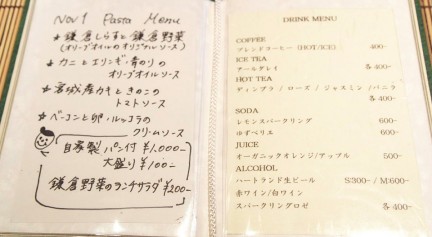 Nov 1 Pasta Menu
☆ 鎌倉しらすと鎌倉野菜
(オリーブオイルのオリジナルソース)
☆ カニとエリンギ・青のりの
オリーブオイルソース
☆ 宮城産カキときのこの
トマトソース
☆ ベーコンと卵・ルッコラの
クリームソース
自家製 パン付 ¥1.000-
大盛り ¥100-
鎌倉野菜のランチサラダ ¥200-
DRINK MENU
COFFEE
ブレンドコーヒー (HOT/ICE) 400-
ICE TEA
アールグレイ 各 400-
HOT TEA
ディンブラ / ローズ / ジャスミン / バニラ
各 400-
SODA
レモンスパークリング 600-
ゆずベリエ 600-
JUICE
オーガニックオレンジ/アップル 500-
ALCOHOL
ハートランド生ビール S:300~ / M:600~
赤ワイン/白ワイン
スパークリングロゼ 各 400-